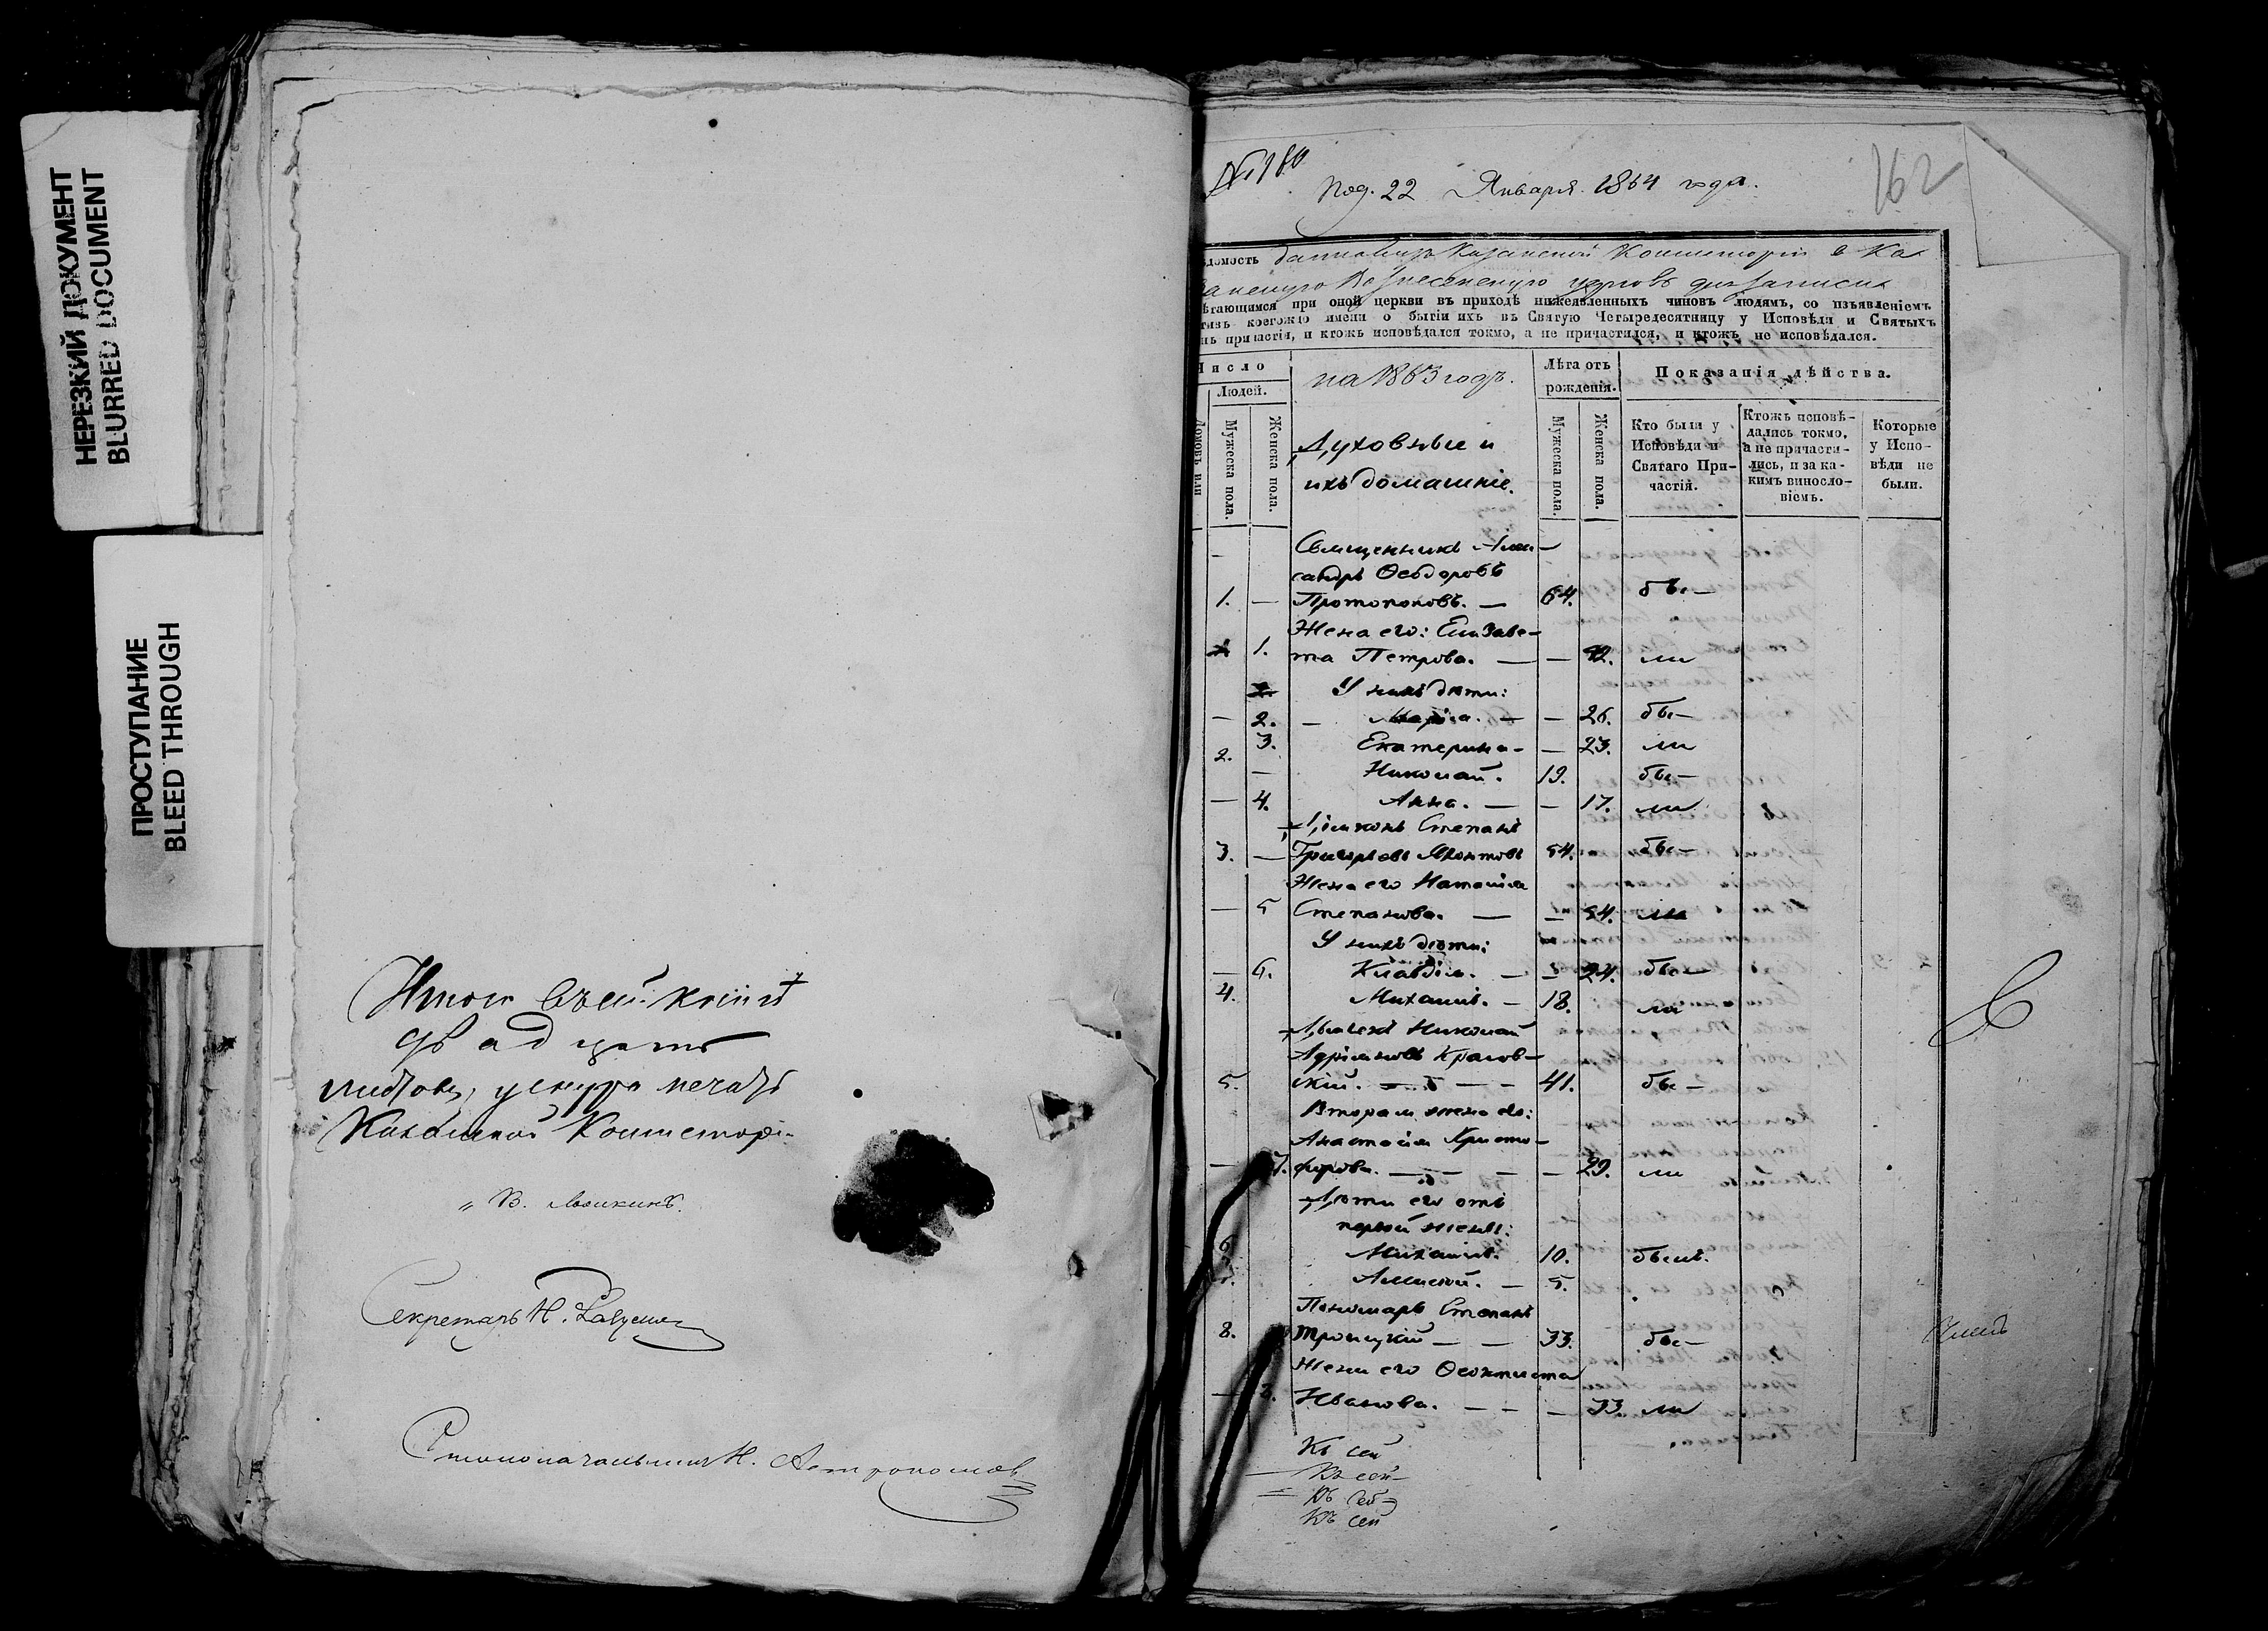 НЕРЕЗКИЙ ДОКУМЕНТ
BLURRED DOCUMENT
ПРОСТУПАНИЕ
BLEED THROUGH
Итого въ сей книгѣ
двадцать
листовъ, у снура печать
Казанской Консисторі
Секретарь Н.
Столоначальникъ Н. Астрономов
№ 180
под. 22 Января 1864 года.
162
домость Казанской Консисторіи в Ка
Вознесенскую церковь для записи
ѣтающимся при оной церкви въ приходѣ нижеявленныхъ чиновъ людямъ, со изъявленіемъ
тивъ коегождо имени о бытіи ихъ въ Святую Четыредесятницу у Исповѣди и Святыхъ
нъ причастія, и ктожъ исповѣдался токмо, а не причастился, и ктожъ не исповѣдался.
Число
Людей.
Домовъ или
Мужеска пола.
Женска пола.
на 1863 годъ.
Духовные и
ихъ домашніе.
Лѣта отъ
рожденія.
Мужеска пола.
Женска пола.
Показанія дѣйства.
Кто были у
Исповѣди и
Святаго При-
частія.
Ктожъ исповѣ-
дались токмо,
а не причасти-
лись, и за ка-
кимъ винносло-
віемъ.
Которые
у Испо-
вѣди не
были.
Священникъ Алек-
сандръ Ѳеодоровъ
1. — Протопоповъ. — 64. бы—
Жена его: Елизаве-
1. та Петрова. — — ли
У нихъ дѣти:
— 2. — Марія. — — 26. бы—
3. Екатерина — — 23. ли
2. — Николай. 19. бы—
— 4. Анна. — — 17. ли
Діаконъ Степанъ
3. — Григорьевъ 54. бы—
Жена его Наталія
— 5 Степанова. — — 54. ли
У нихъ дѣти:
— 6. Клавдія. — — 24. бы—
4. Михаилъ. — 18. ли
Дьячекъ Николай
Адріановъ Красов-
5. скій. — — — 41. бы—
Вторая жена его:
Анастасія Христо-
— 7. форова. — — — — 29. ли
Дѣти его отъ
первой жены:
6 Михаилъ. 10. былъ.
7. Алексѣй. — 5.
Пономарь Степанъ
8. Троицкій — — 33. бы—
Жена его Ѳеоктиста
— 8. Иванова. — — — 33. ли
Къ сей
Къ сей
Къ сей
Къ сей